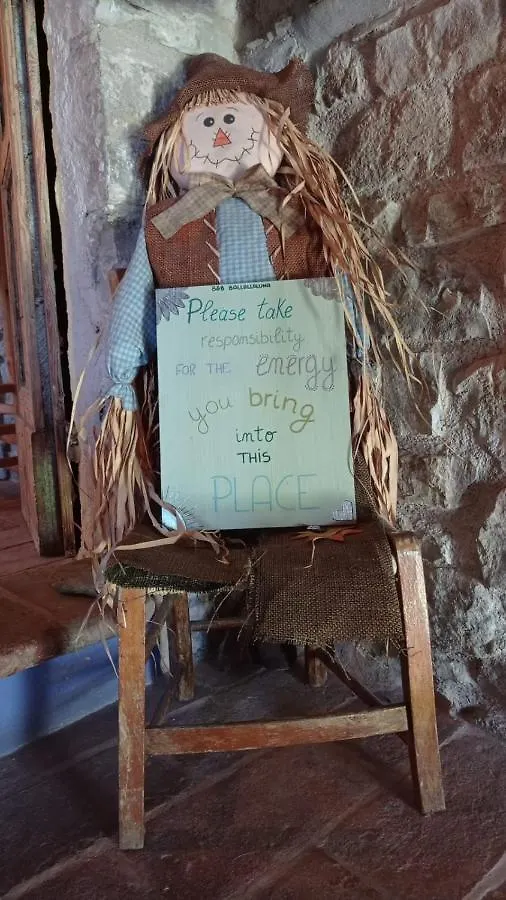 B&B BALLALLALUNA
Please take
responsibility
FOR THE energy
you bring
into
THIS
PLACE